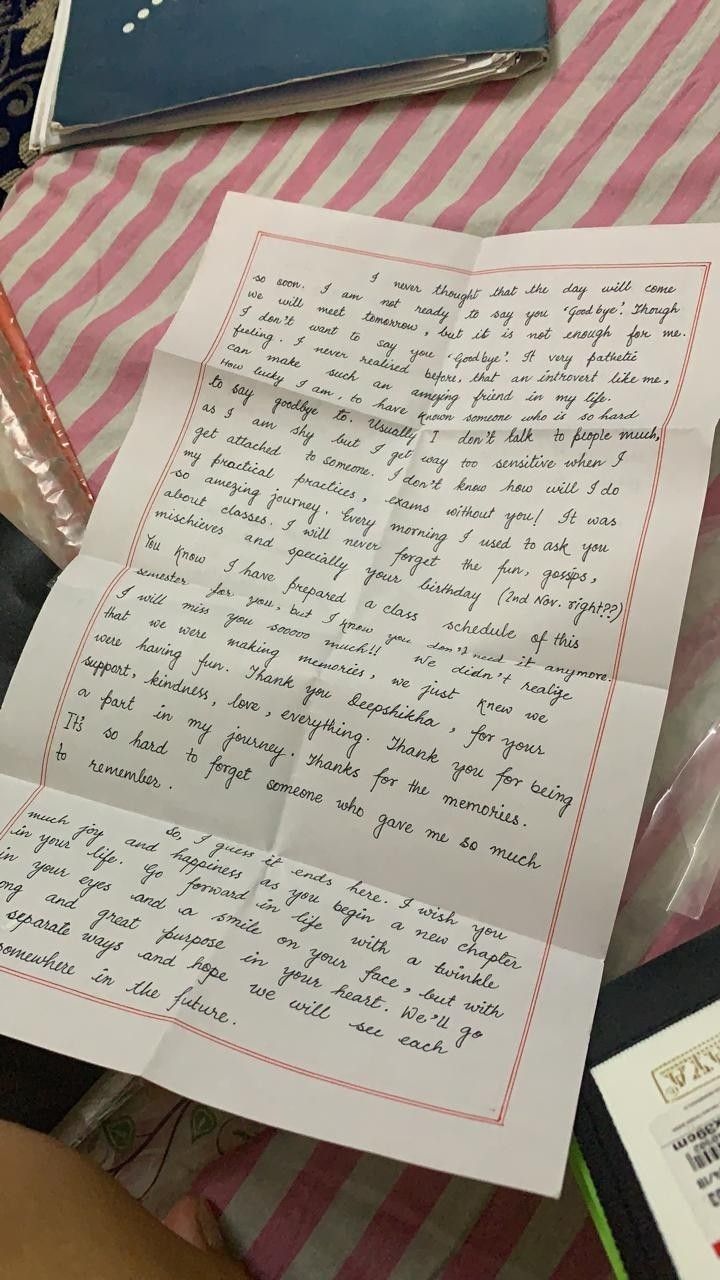 I never thought that the day will come
so soon. I am not ready to say you 'Good bye'. Though
we will meet tomorrow, but it is not enough for me.
I don't want to say you 'Goodbye'. It very pathetic
feeling. I never realised before, that an introvert like me,
can make such an amezing friend in my life.
How lucky I am, to have known someone who is so hard
to say goodbye to. Usually I don't talk to people much,
as I am shy but I get way too sensitive when I
get attached to someone. I don't know how will I do
my practical practices, exams without you! It was
so amezing journey. Every morning I used to ask you
about classes. I will never forget the fun, gossips,
mischieves and specially your birthday (2nd Nov. right??)
You know I have prepared a class schedule of this
semester for you, but I know you don't need it anymore.
I will miss you sooooo much!! We didn't realize
that we were making memories, we just knew we
were having fun. Thank you Deepshikha, for your
support, kindness, love, everything. Thank you for being
a part in my journey. Thanks for the memories.
It's so hard to forget someone who gave me so much
to remember.
So, I guess it ends here. I wish you
much joy and happiness as you begin a new chapter
in your life. Go forward in life with a twinkle
in your eyes and a smile on your face, but with
ong and great purpose in your heart. We'll go
separate ways and hope we will see each
somewhere in the future.